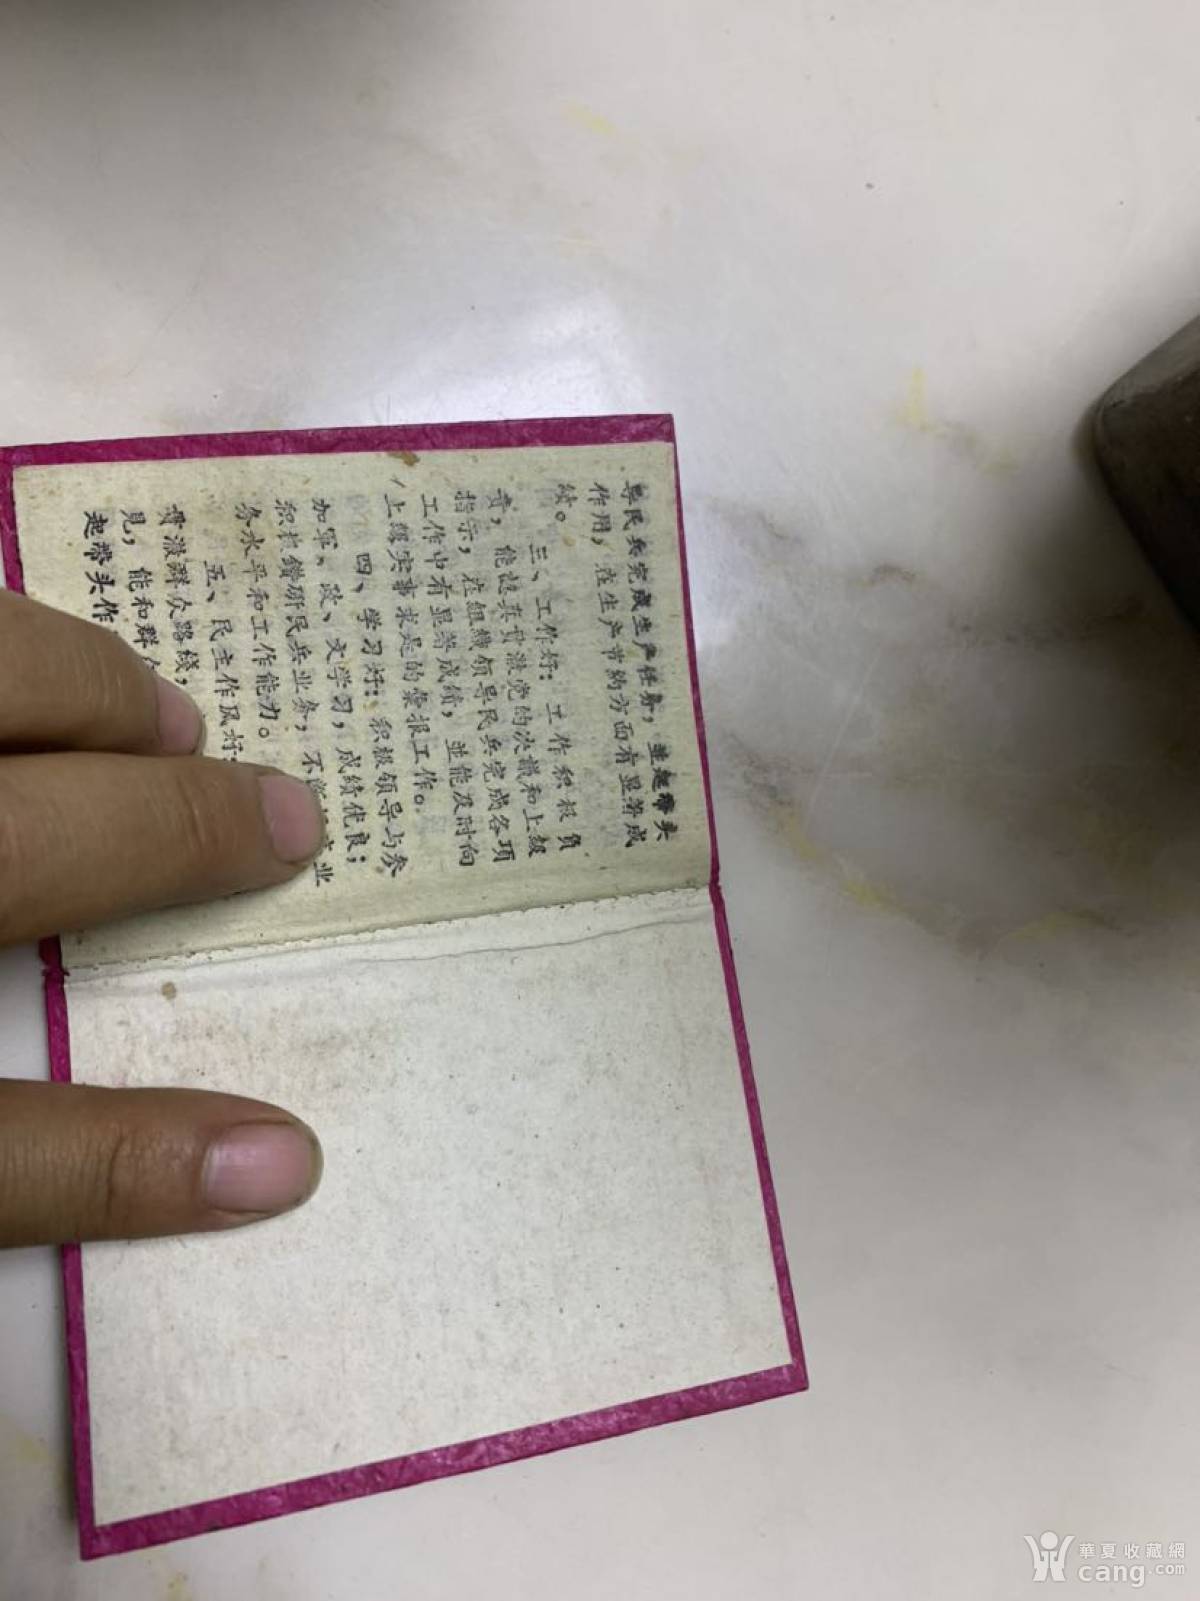 导民兵完成生产任务，並起带头
作用，在生产节约方面有显著成
绩。
三、工作好：工作积极负
责，能认真貫澈党的决議和上級
指示，在組織領导民兵完成各項
工作中有显著成績，並能及时向
上級实事求是的彙报工作。
四、学习好：积极領导与参
加軍、政、文学习，成績优良；
积极鑽研民兵业务，不断
业
务水平和工作能力。
五、民主作风好：
貫澈群众路綫，
見，能和群众
起带头作
華夏收藏網
cang.com